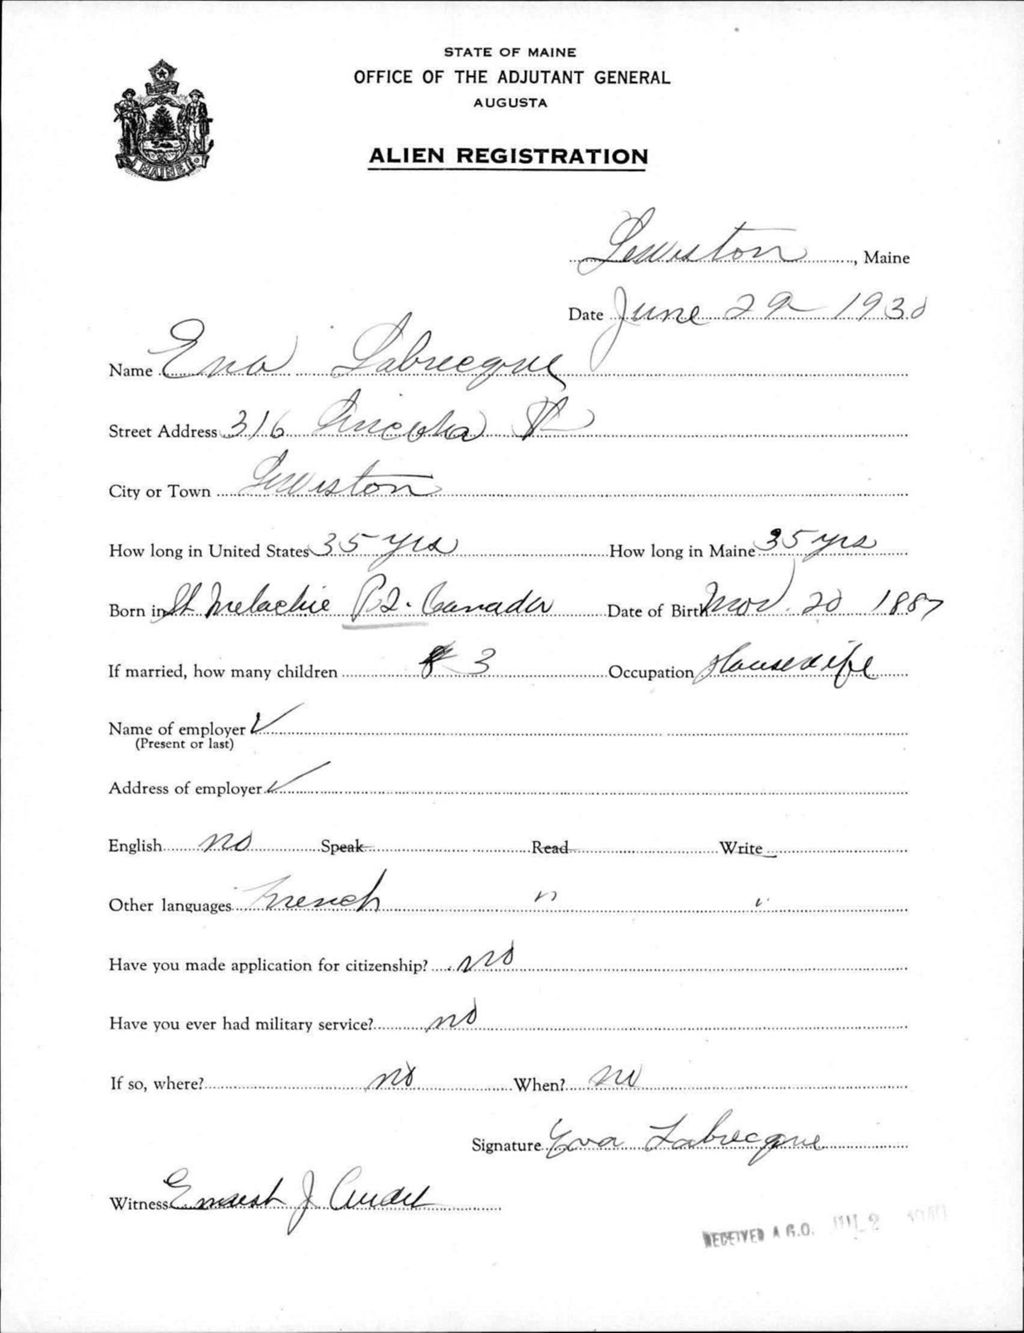 STATE OF MAINE
OFFICE OF THE ADJUTANT GENERAL
AUGUSTA
ALIEN REGISTRATION
MAINE
Lewiston, Maine
Date June 29 1930
Name Eva Labrecque
Street Address 316 Lincoln St
City or Town Lewiston
How long in United States 35 yrs How long in Maine 35 yrs
Born in St Melachie P.Q. Canada Date of Birth Nov. 20 1887
If married, how many children 3 Occupation Housewife
Name of employer ✓
(Present or last)
Address of employer ✓
English no Speak Read Write
Other languages French " "
Have you made application for citizenship? no
Have you ever had military service? no
If so, where? no When? no
Signature Eva Labrecque
Witness Ernest J
RECEIVED A.G.O. JUL 2